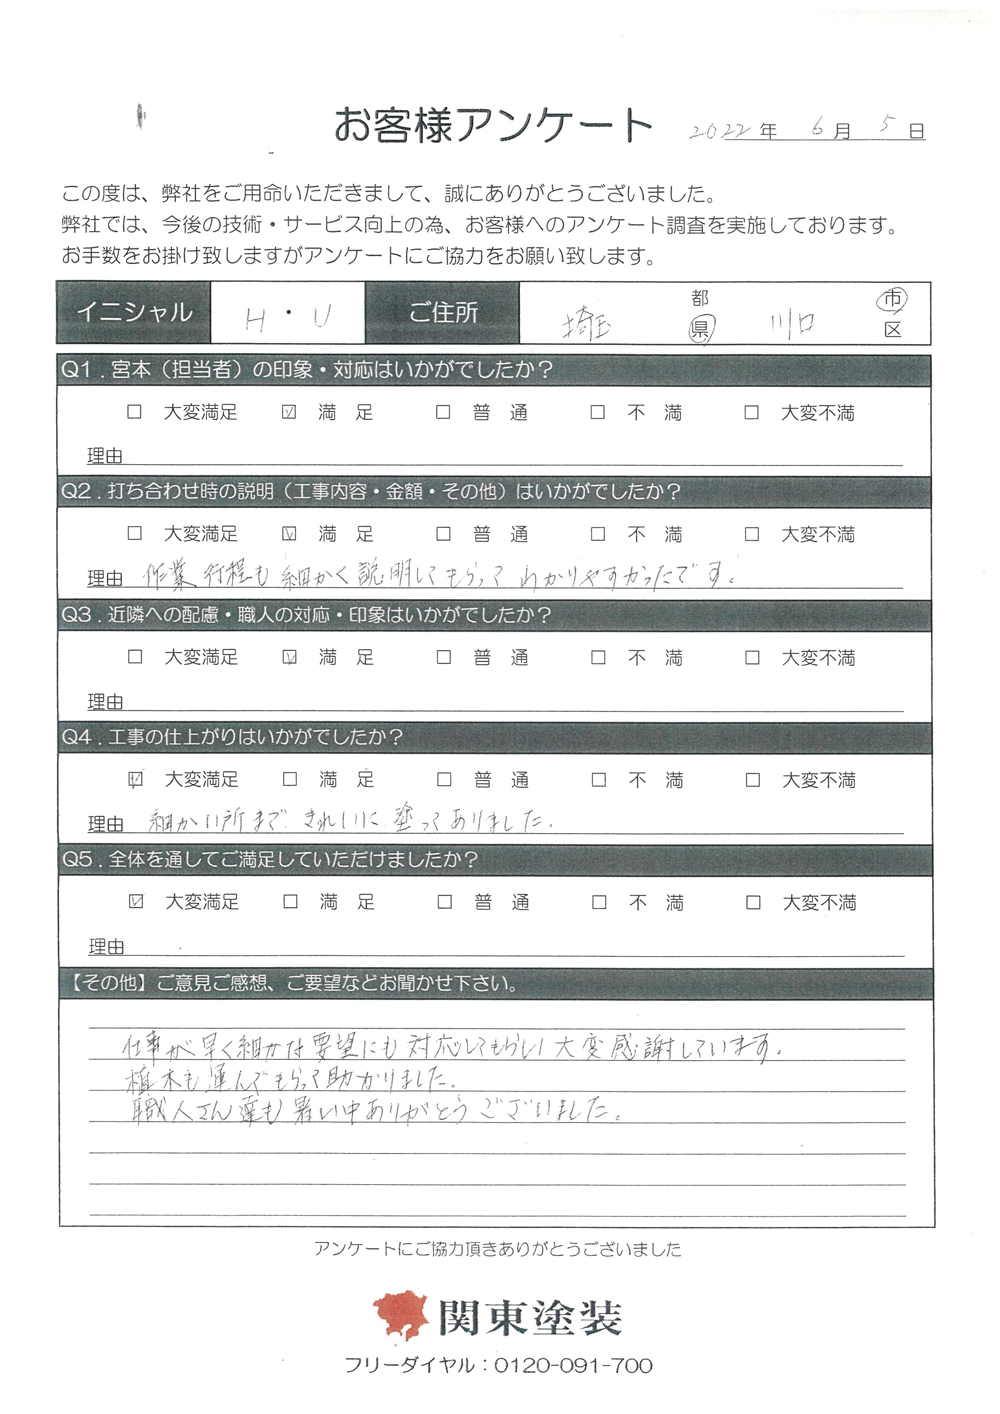 お客様アンケート 2022年 6月 5日
この度は、弊社をご用命いただきまして、誠にありがとうございました。
弊社では、今後の技術・サービス向上の為、お客様へのアンケート調査を実施しております。
お手数をお掛け致しますがアンケートにご協力をお願い致します。
イニシャル H・U ご住所 埼玉 都 県 川口 市 区
Q1.宮本（担当者）の印象・対応はいかがでしたか？
□ 大変満足 ☑ 満 足 □ 普 通 □ 不 満 □ 大変不満
理由
Q2.打ち合わせ時の説明（工事内容・金額・その他）はいかがでしたか？
□ 大変満足 ☑ 満 足 □ 普 通 □ 不 満 □ 大変不満
理由 作業行程も細かく説明してもらってわかりやすかったです。
Q3.近隣への配慮・職人の対応・印象はいかがでしたか？
□ 大変満足 ☑ 満 足 □ 普 通 □ 不 満 □ 大変不満
理由
Q4.工事の仕上がりはいかがでしたか？
☑ 大変満足 □ 満 足 □ 普 通 □ 不 満 □ 大変不満
理由 細かい所まできれいに塗ってありました.
Q5.全体を通してご満足していただけましたか？
☑ 大変満足 □ 満 足 □ 普 通 □ 不 満 □ 大変不満
理由
【その他】ご意見ご感想、ご要望などお聞かせ下さい。
仕事が早く細かな要望にも対応してもらい大変感謝しています.
植木も運んでもらって助かりました.
職人さん達も暑い中ありがとうございました。
アンケートにご協力頂きありがとうございました
関東塗装
フリーダイヤル：0120-091-700